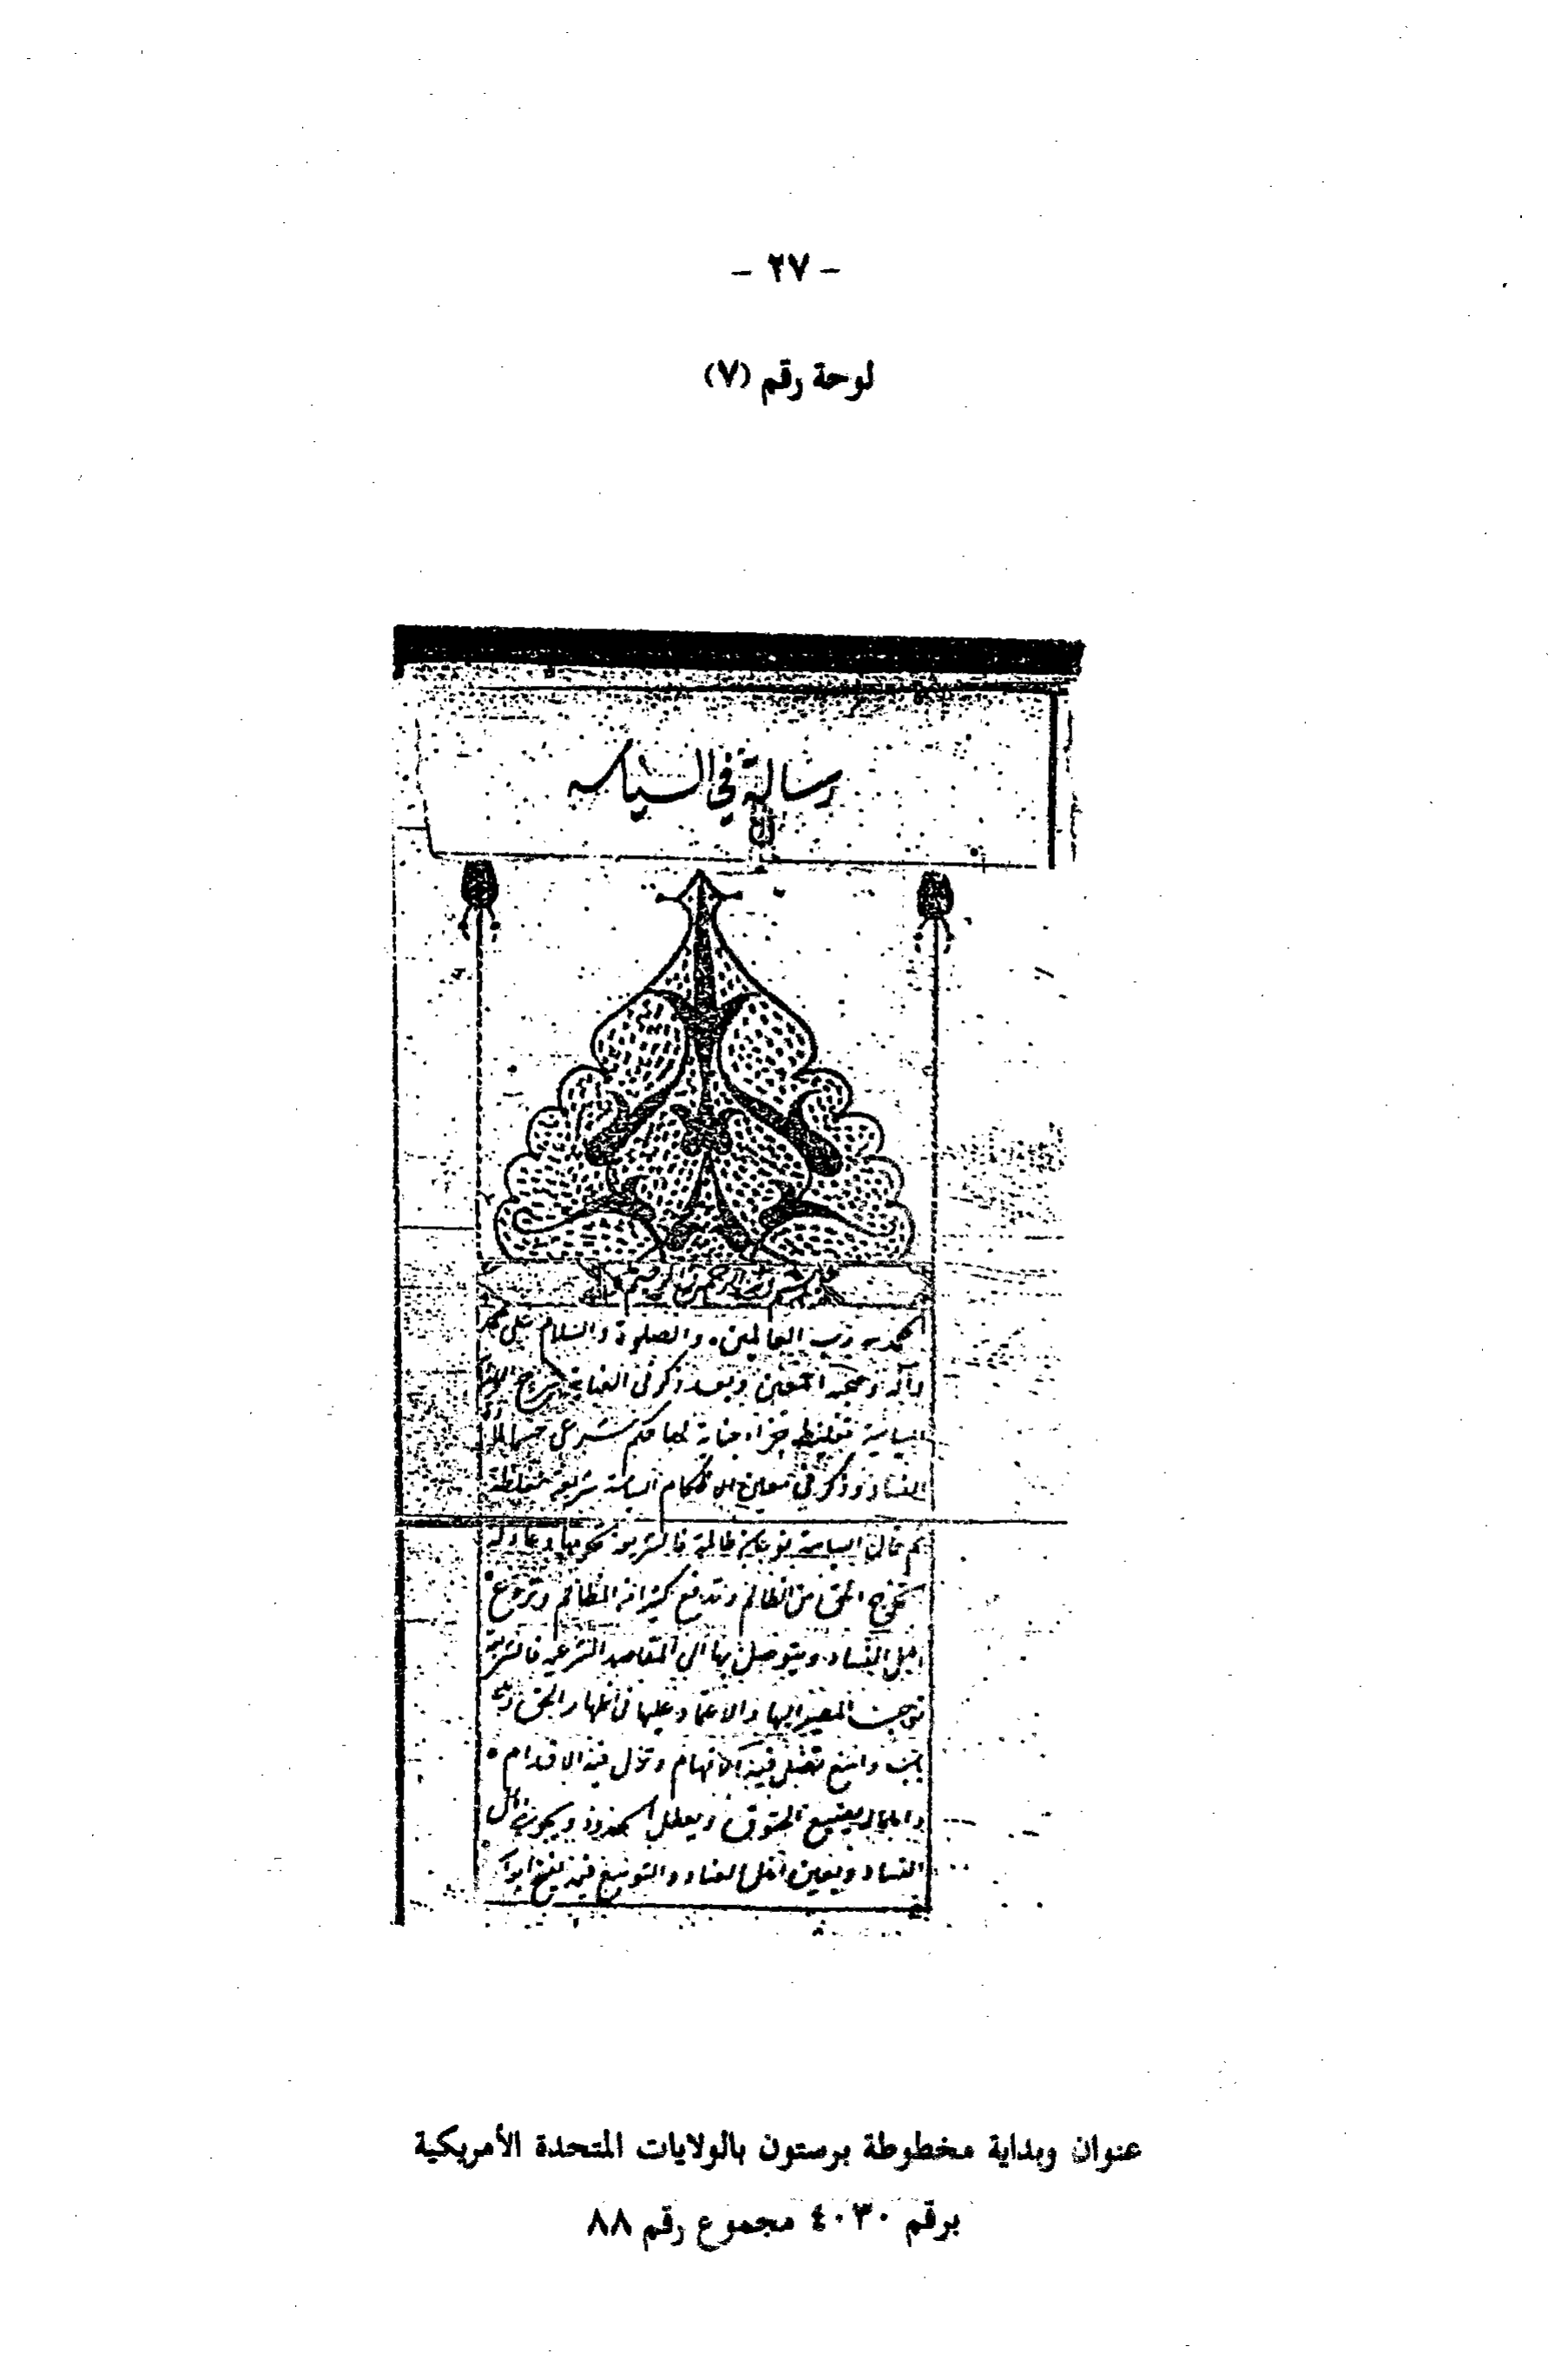 - ٢٧ -
لوحة رقم (٧)
رسالة في السياسه
بسم الله الرحمن الرحيم
الحمد لله رب العالمين والصلوة والسلام على محمد
وآله وصحبه اجمعين وبعد ذكر في العناية
السياسة تغليظ جزاء جناية لها حكم شرعى حسما
الفساد وذكر في معين الاحكام السياسة شريعة مغلظة
ثم قال السياسة نوعان ظالمة فالشريعة تحرمها وعادلة
تخرج الحق من الظالم وتدفع كثيرا من المظالم وتردع
اهل الفساد ويتوصل بها الى المقاصد الشرعيه فالشريعة
توجب المصير اليها والاعتماد عليها في اظهار الحق وهى
باب واسع تضل فيه الافهام وتزل فيه الاقدام
واهماله يضيع الحقوق ويعطل الحدود ويجرئ اهل
الفساد ويعين اهل العناد والتوسيع فيه يفتح ابواب
عنوان وبداية مخطوطة برستون بالولايات المتحدة الأمريكية
برقم ٤٠٣٠ مجموع رقم ٨٨